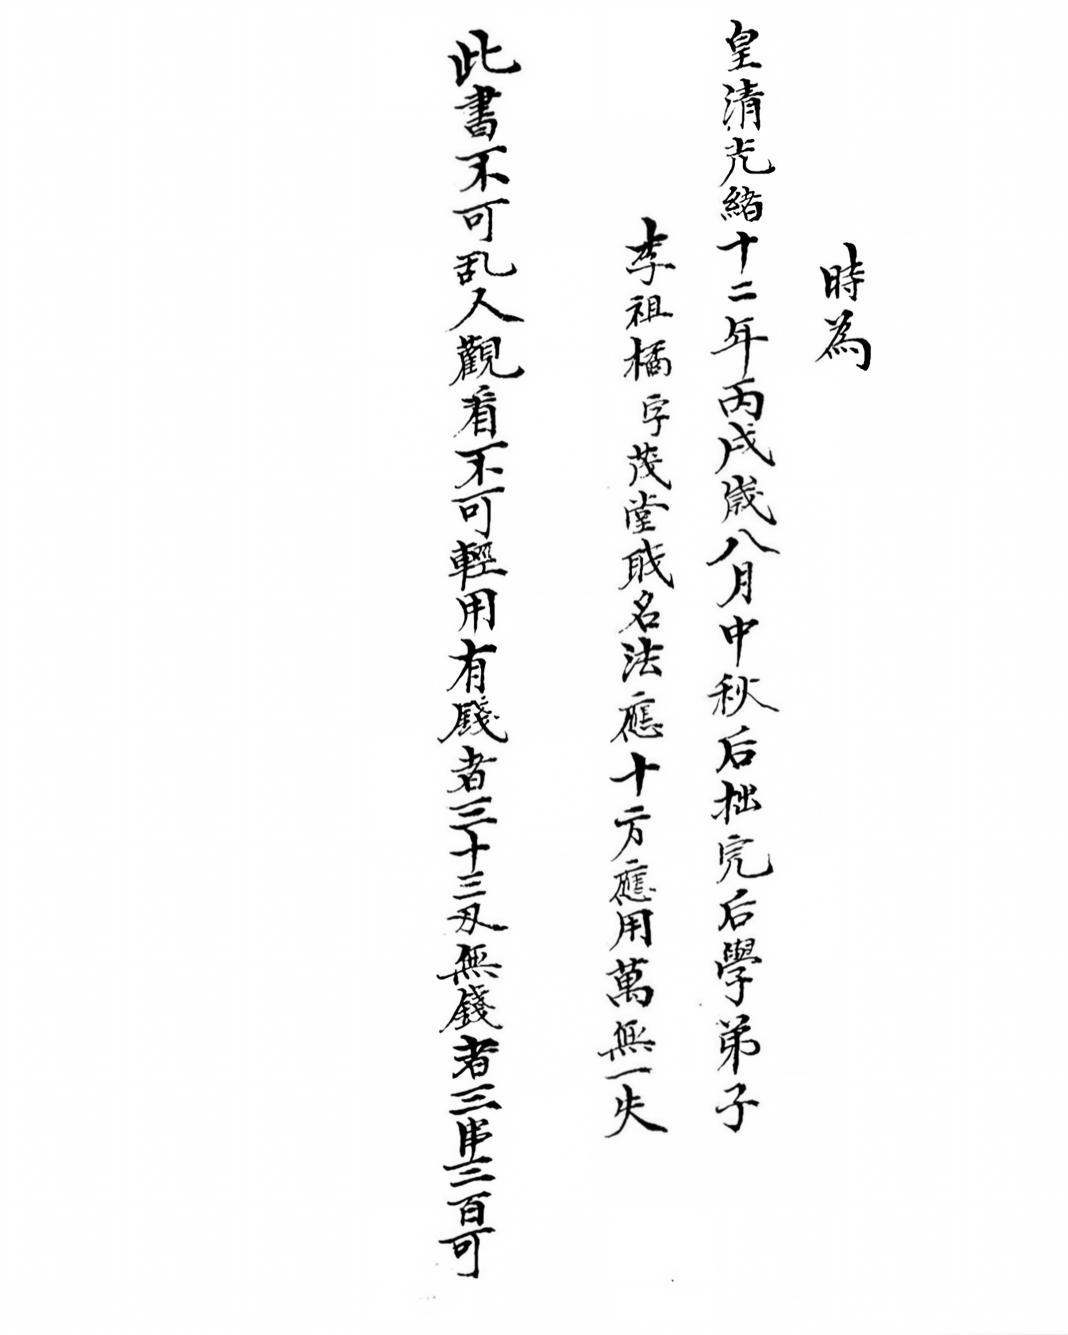 時為
皇清光緒十二年丙戌歲八月中秋后拙完后學弟子
李祖橘字茂堂戝名法應十方應用萬無一失
此書不可乱人觀看不可輕用有錢者三十三刄無錢者三串三百可